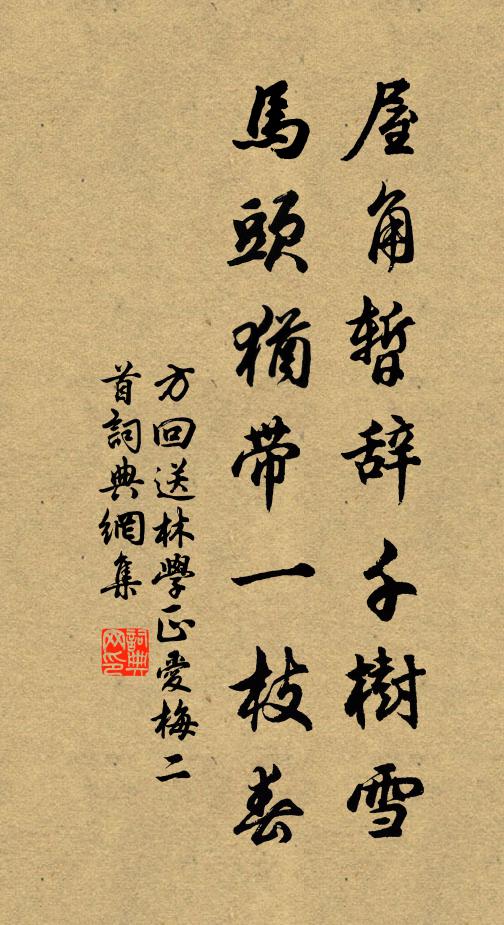 屋角暫辞千樹雪
馬頭猶帶一枝春
方回送林學正愛梅二
首詞典網集
詞典
网印